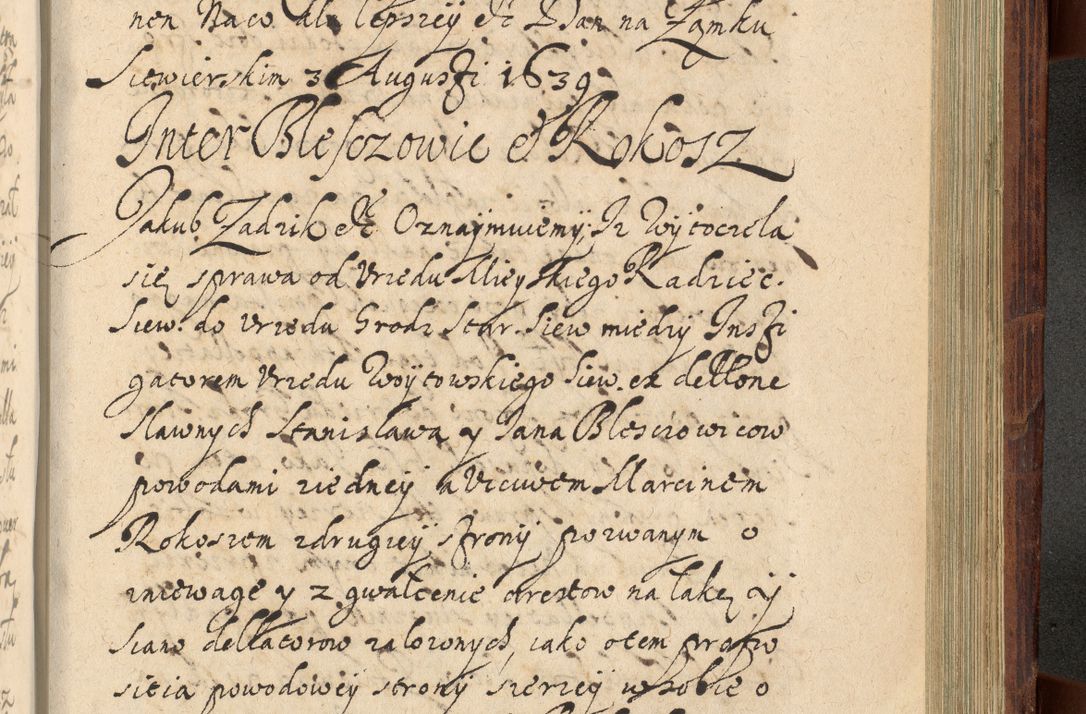 nen Naco dla lepszey &c Dan na Zamku
Siewierskim 3 Augusti 1639
Inter Blesczowic et Rokosz
Jakub Zadzik &c Oznaymuiemy, Iz Wytoczela
się sprawa od Vrzedu Mieyskiego Radziec.
Siew. do Vrzedu Grodz Star. Siew miedzy Insti
gatorem Vrzedu Woytowskiego Siew. ex dellone
Slawnych Stanislawa y Jana Blesczowicow
powodami ziedney a Vczciwem Marcinem
Rokoszem zdrugiey strony pozwanym o
zniewage y zgwalcenie arestow na lake y
siano dellatorow zalozonych, iako otem
sicia powodowey strony szerzey w sobie o